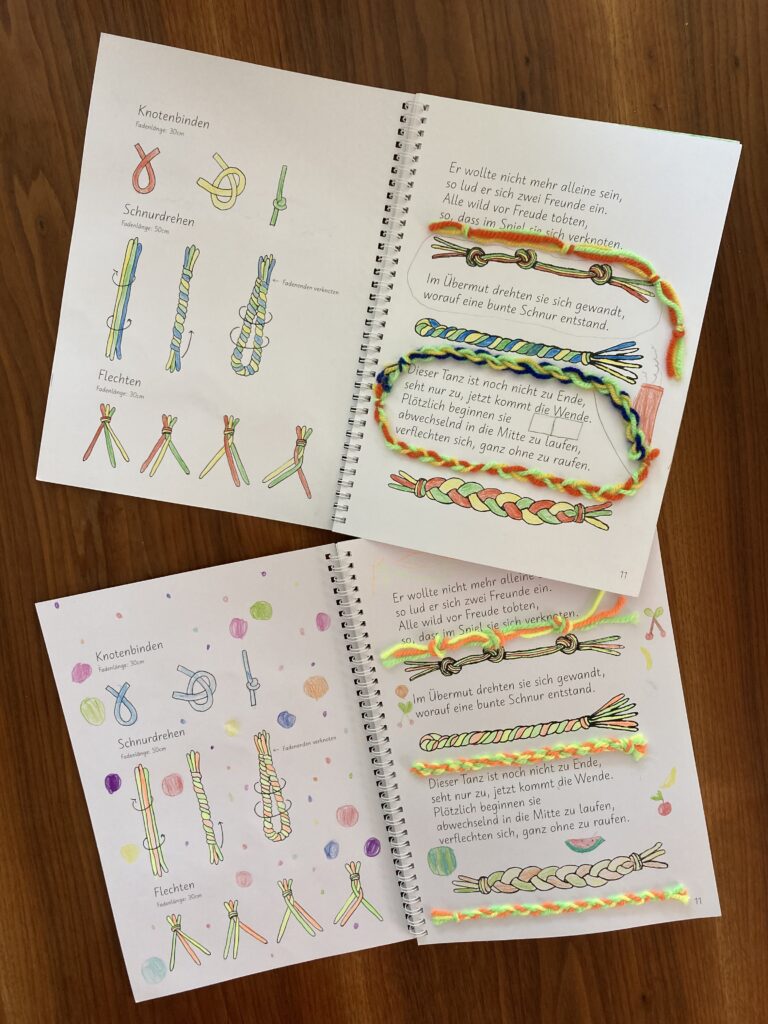 Knotenbinden
Fadenlänge: 30cm
Schnurdrehen
Fadenlänge: 50cm
Fadenenden verknoten
Flechten
Fadenlänge: 30cm
Er wollte nicht mehr alleine sein,
so lud er sich zwei Freunde ein.
Alle wild vor Freude tobten,
so, dass im Spiel sie sich verknoten.
Im Übermut drehten sie sich gewandt,
worauf eine bunte Schnur entstand.
Dieser Tanz ist noch nicht zu Ende,
seht nur zu, jetzt kommt die Wende.
Plötzlich beginnen sie
abwechselnd in die Mitte zu laufen,
verflechten sich, ganz ohne zu raufen.
11
Knotenbinden
Fadenlänge: 30cm
Schnurdrehen
Fadenlänge: 50cm
Fadenenden verknoten
Flechten
Fadenlänge: 30cm
Er wollte nicht mehr alleine
so lud er sich zwei Freunde ein.
Alle wild vor Freude tobten,
so, dass im Spiel sie sich verknoten.
Im Übermut drehten sie sich gewandt,
worauf eine bunte Schnur entstand.
Dieser Tanz ist noch nicht zu Ende,
seht nur zu, jetzt kommt die Wende.
Plötzlich beginnen sie
abwechselnd in die Mitte zu laufen,
verflechten sich, ganz ohne zu raufen.
11